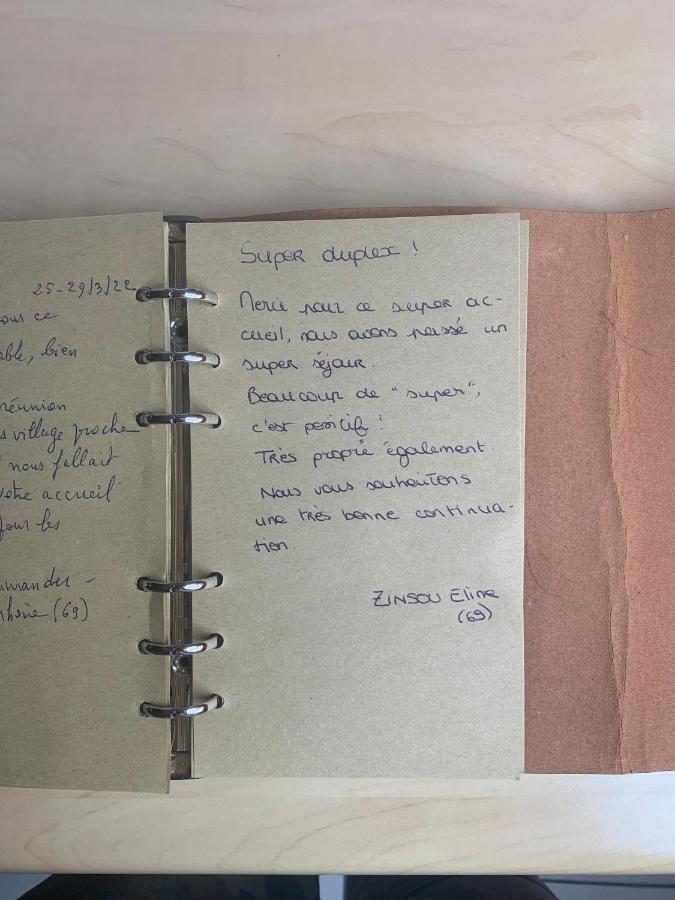 25-29/3/22
ous ce
able, bien
réunion
s village proche
nous fallait
votre accueil
pour les
mmander -
Rhône (69)
Super duplex !
Merci pour ce super ac-
cueil, nous avons passé un
super séjour.
Beaucoup de "super",
c'est positif !
Très propre également.
Nous vous souhaitons
une très bonne continua-
tion.
ZINSOU Eline
(69)